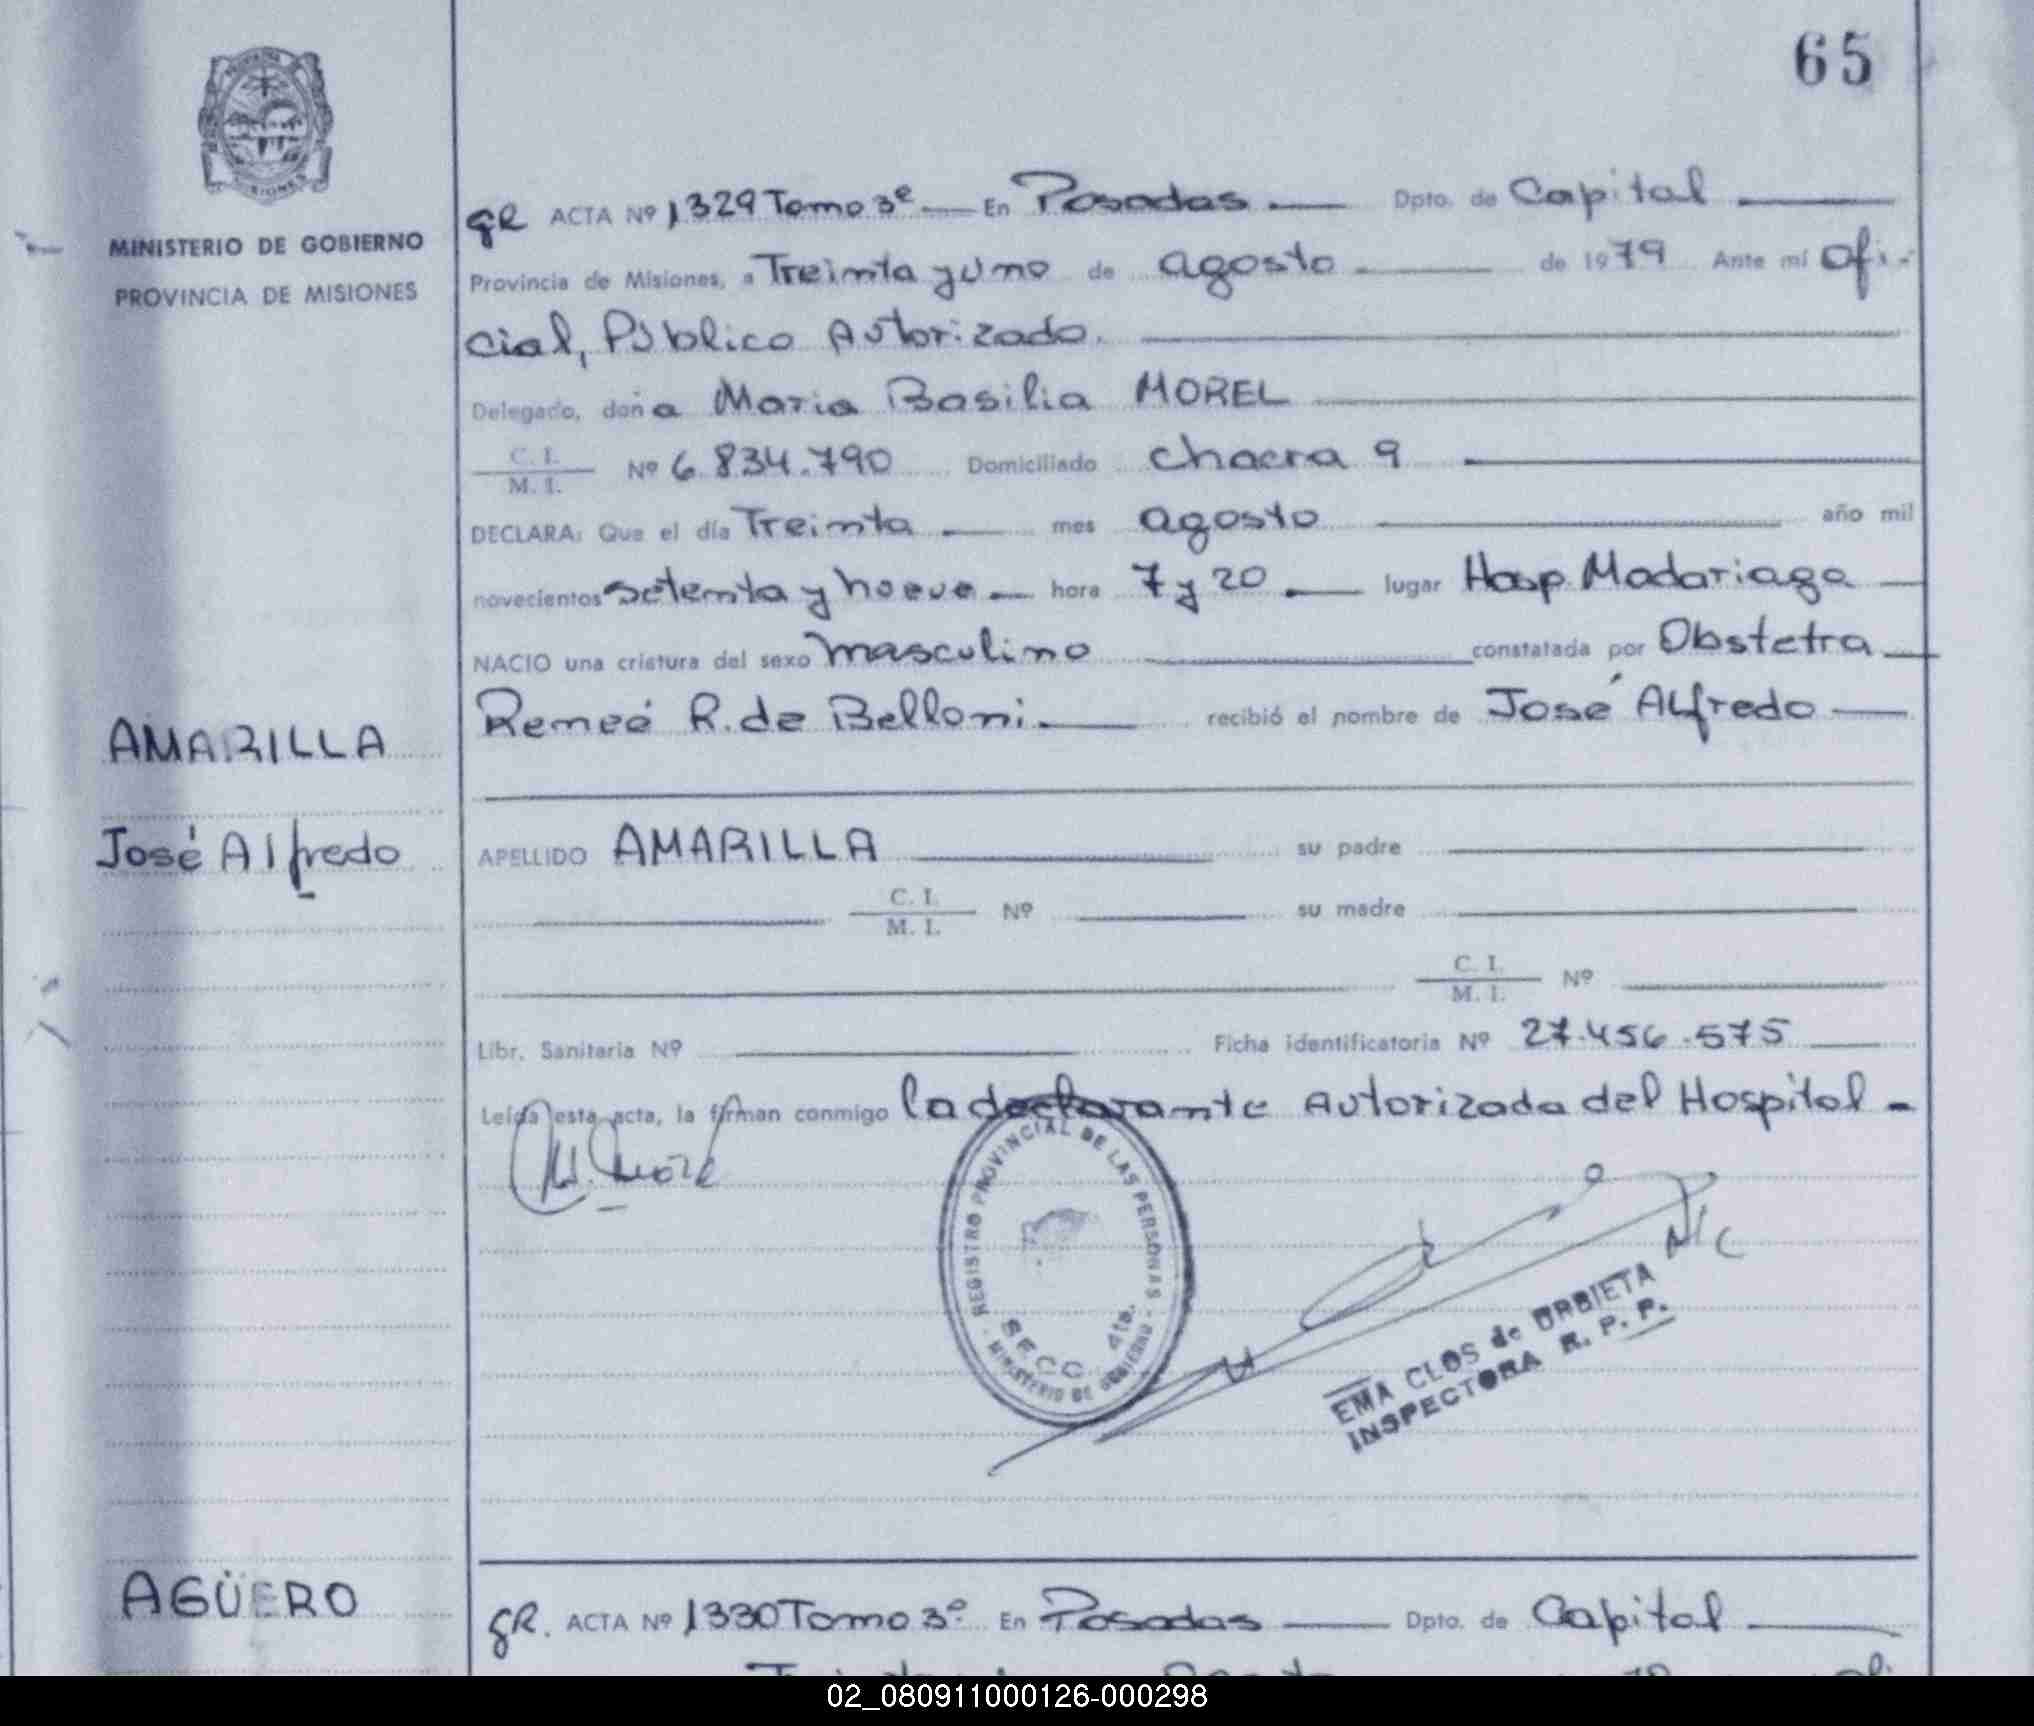 65
MINISTERIO DE GOBIERNO
PROVINCIA DE MISIONES
gR ACTA Nº 1329 Tomo 3º En Posadas Dpto. de Capital
Provincia de Misiones, a Treinta y uno de agosto de 1979 Ante mí ofi-
cial, Público Autorizado.
Delegado, doña Maria Basilia MOREL
C. I.
M. I. Nº 6.834.790 Domiciliado chacra 9
DECLARA: Que el día Treinta mes agosto año mil
novecientos setenta y nueve hora 7 y 20 lugar Hosp. Madariaga
NACIO una criatura del sexo masculino constatada por Obstetra
Remeé R. de Belloni recibió el nombre de José Alfredo
AMARILLA
José Alfredo
APELLIDO AMARILLA su padre
C. I.
M. I. Nº su madre
C. I.
M. I. Nº
Libr. Sanitaria Nº Ficha identificatoria Nº 27.456.575
Leída esta acta, la firman conmigo la declarante Autorizada del Hospital -
REGISTRO PROVINCIAL DE LAS PERSONAS - MINISTERIO DE GOBIERNO -
SECC. 4ta.
EMA CLOS de URBIETA
INSPECTORA R. P. P.
AGÜERO
gR. ACTA Nº 1330 Tomo 3º En Posadas Dpto. de Capital
02_080911000126-000298